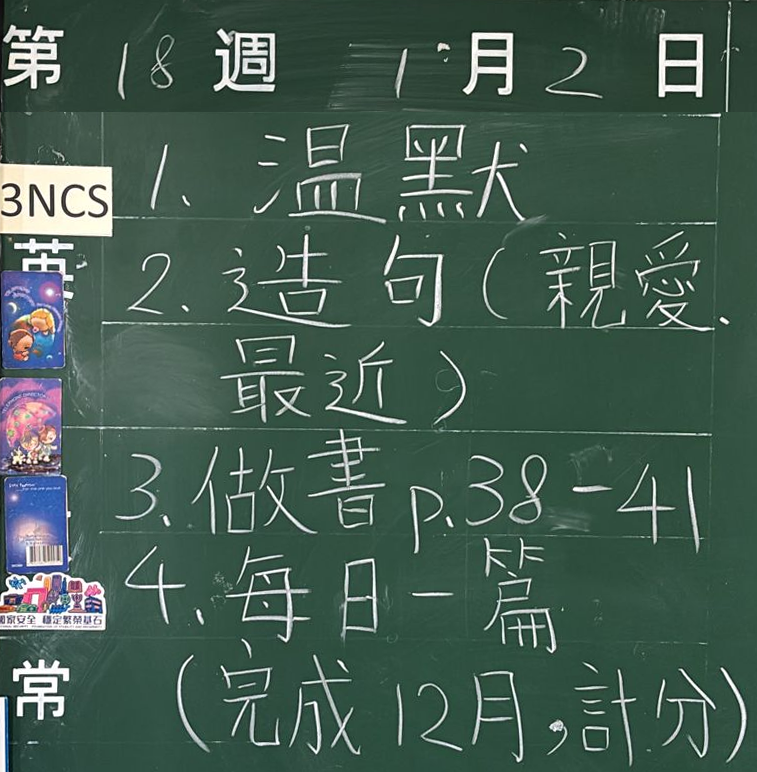 第 18 週 1月2日
1. 温默
3NCS
英
2. 造句(親愛.
最近)
3. 做書 p.38-41
4. 每日一篇
國家安全 穩定繁榮基石
常
(完成12月,計分)